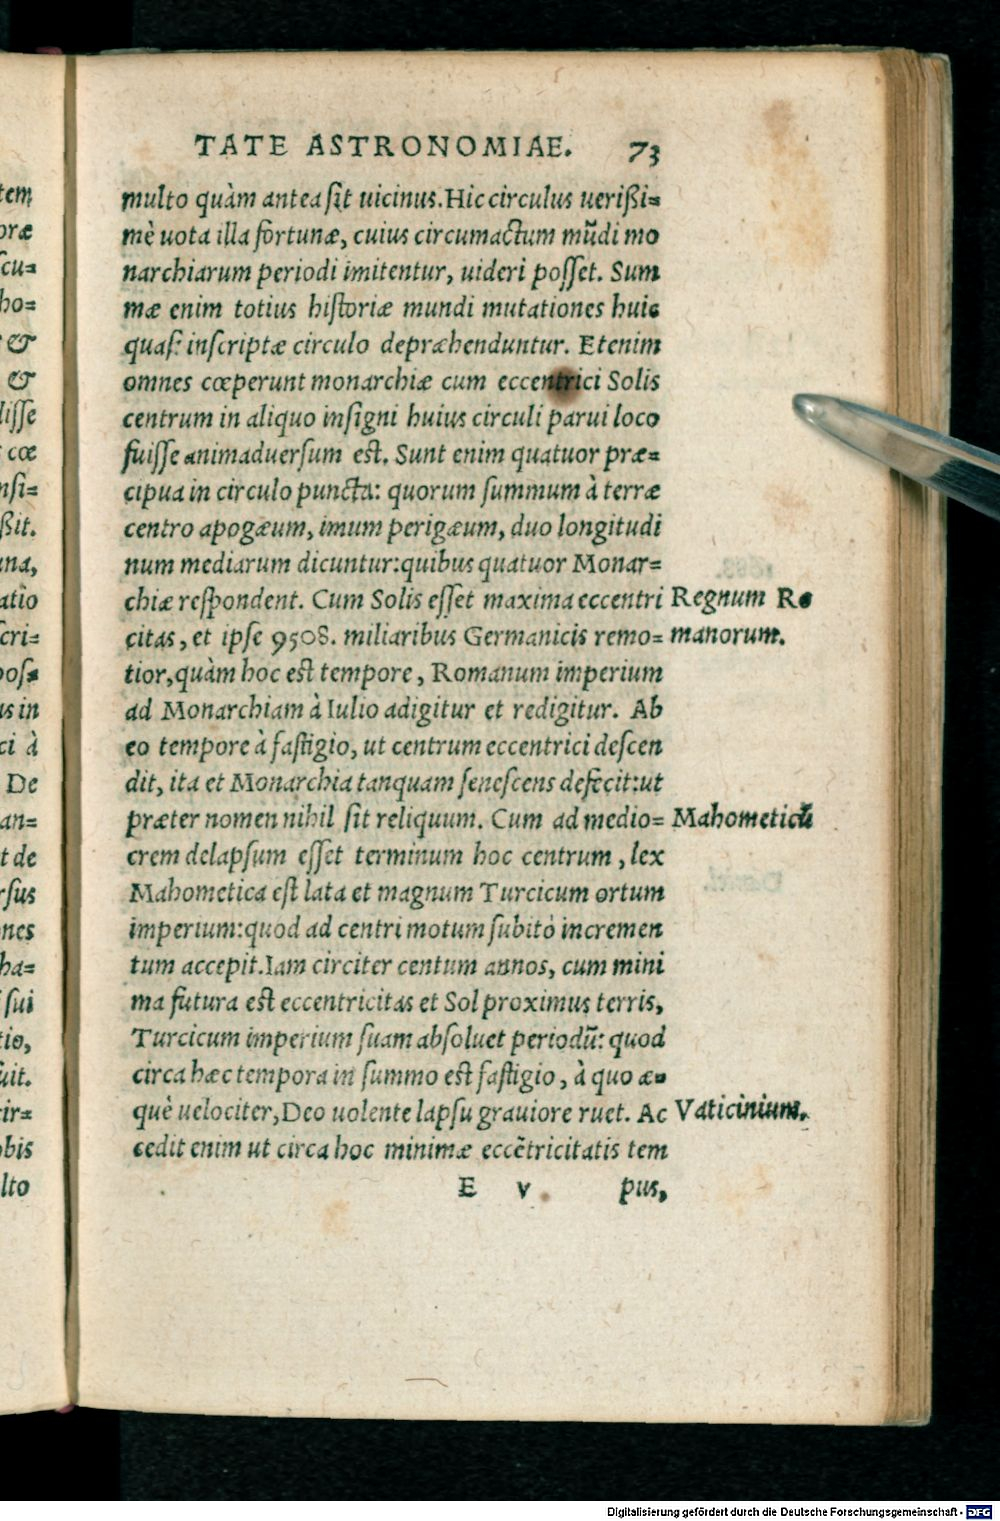 TATE ASTRONOMIAE. 73
multo quàm antea sit uicinus. Hic circulus uerißi=
mè uota illa fortunæ, cuius circumactum mũdi mo
narchiarum periodi imitentur, uideri posset. Sum
mæ enim totius historiæ mundi mutationes huic
quasi inscriptæ circulo depræhenduntur. Etenim
omnes cœperunt monarchiæ cum eccentrici Solis
centrum in aliquo insigni huius circuli parui loco
fuisse animaduersum est. Sunt enim quatuor præ=
cipua in circulo puncta: quorum summum à terræ
centro apogæum, imum perigæum, duo longitudi
num mediarum dicuntur: quibus quatuor Monar=
chiæ respondent. Cum Solis esset maxima eccentri
Regnum Ro
citas, et ipse 9508. miliaribus Germanicis remo=
manorum.
tior, quàm hoc est tempore, Romanum imperium
ad Monarchiam à Iulio adigitur et redigitur. Ab
eo tempore à fastigio, ut centrum eccentrici descen
dit, ita et Monarchia tanquam senescens defecit: ut
præter nomen nihil sit reliquum. Cum ad medio=
Mahometicũ
crem delapsum esset terminum hoc centrum, lex
Mahometica est lata et magnum Turcicum ortum
imperium: quod ad centri motum subitò incremen
tum accepit. Iam circiter centum annos, cum mini
ma futura est eccentricitas et Sol proximus terris,
Turcicum imperium suam absoluet periodũ: quod
circa hæc tempora in summo est fastigio, à quo æ=
què uelociter, Deo uolente lapsu grauiore ruet. Ac
Vaticinium.
cedit enim ut circa hoc minimæ eccẽtricitatis tem
E v pus,
Digitalisierung gefördert durch die Deutsche Forschungsgemeinschaft - DFG